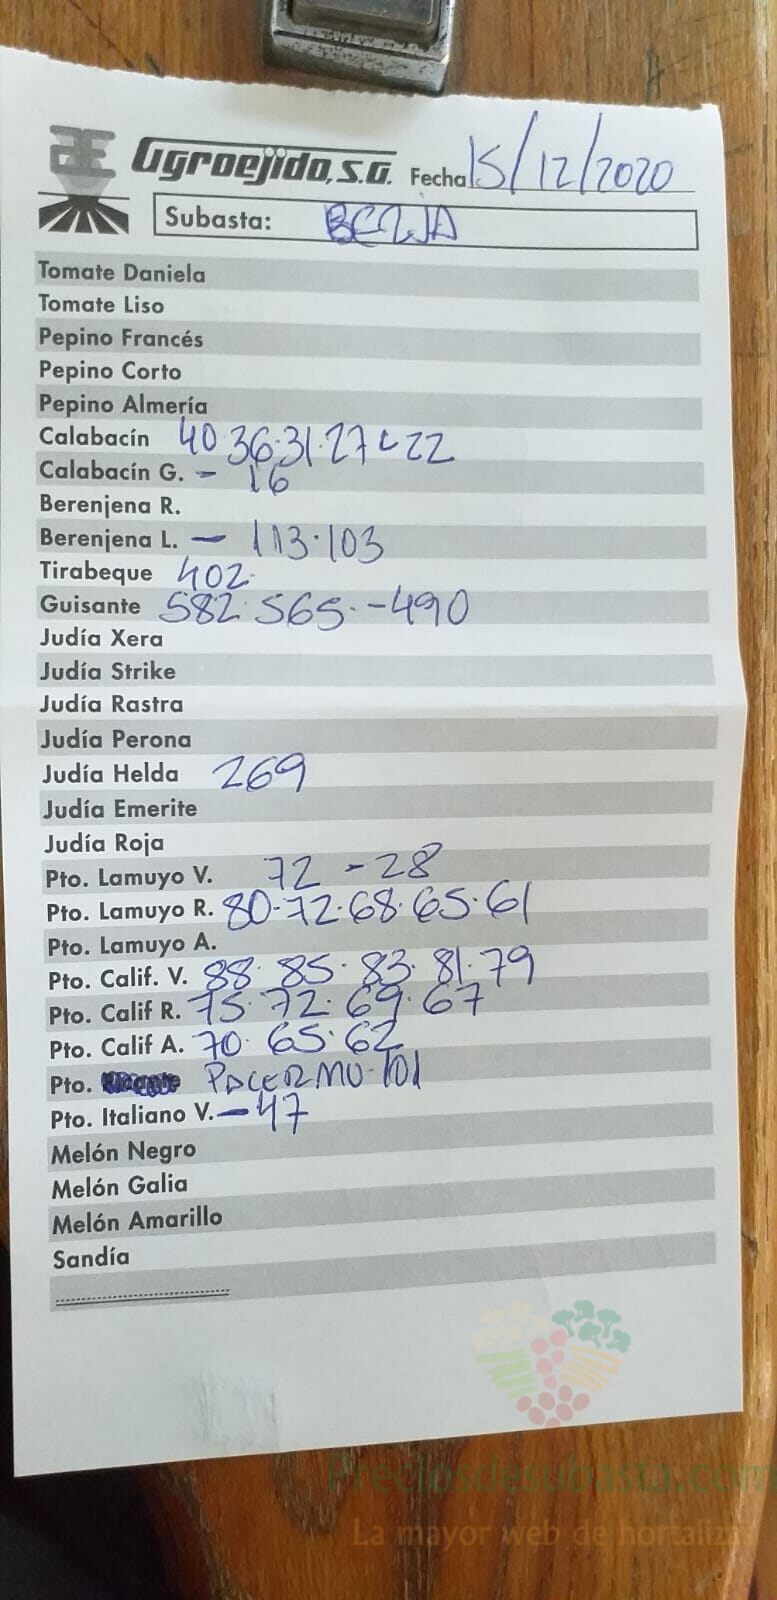 AE Agroejido, S.A. Fecha 15/12/2020
Subasta: BERJA
Tomate Daniela
Tomate Liso
Pepino Francés
Pepino Corto
Pepino Almería
Calabacín 40·36·31·27-22
Calabacín G. - 16
Berenjena R.
Berenjena L. - 113·103
Tirabeque 402·
Guisante 582·565·-490
Judía Xera
Judía Strike
Judía Rastra
Judía Perona
Judía Helda 269
Judía Emerite
Judía Roja
Pto. Lamuyo V. 72 - 28
Pto. Lamuyo R. 80·72·68·65·61
Pto. Lamuyo A.
Pto. Calif. V. 88·85·83·81·79
Pto. Calif R. 75·72·69·67
Pto. Calif A. 70·65·62
Pto. PALERMO·101
Pto. Italiano V. - 47
Melón Negro
Melón Galia
Melón Amarillo
Sandía
Preciosdesubasta.com
La mayor web de hortalizas